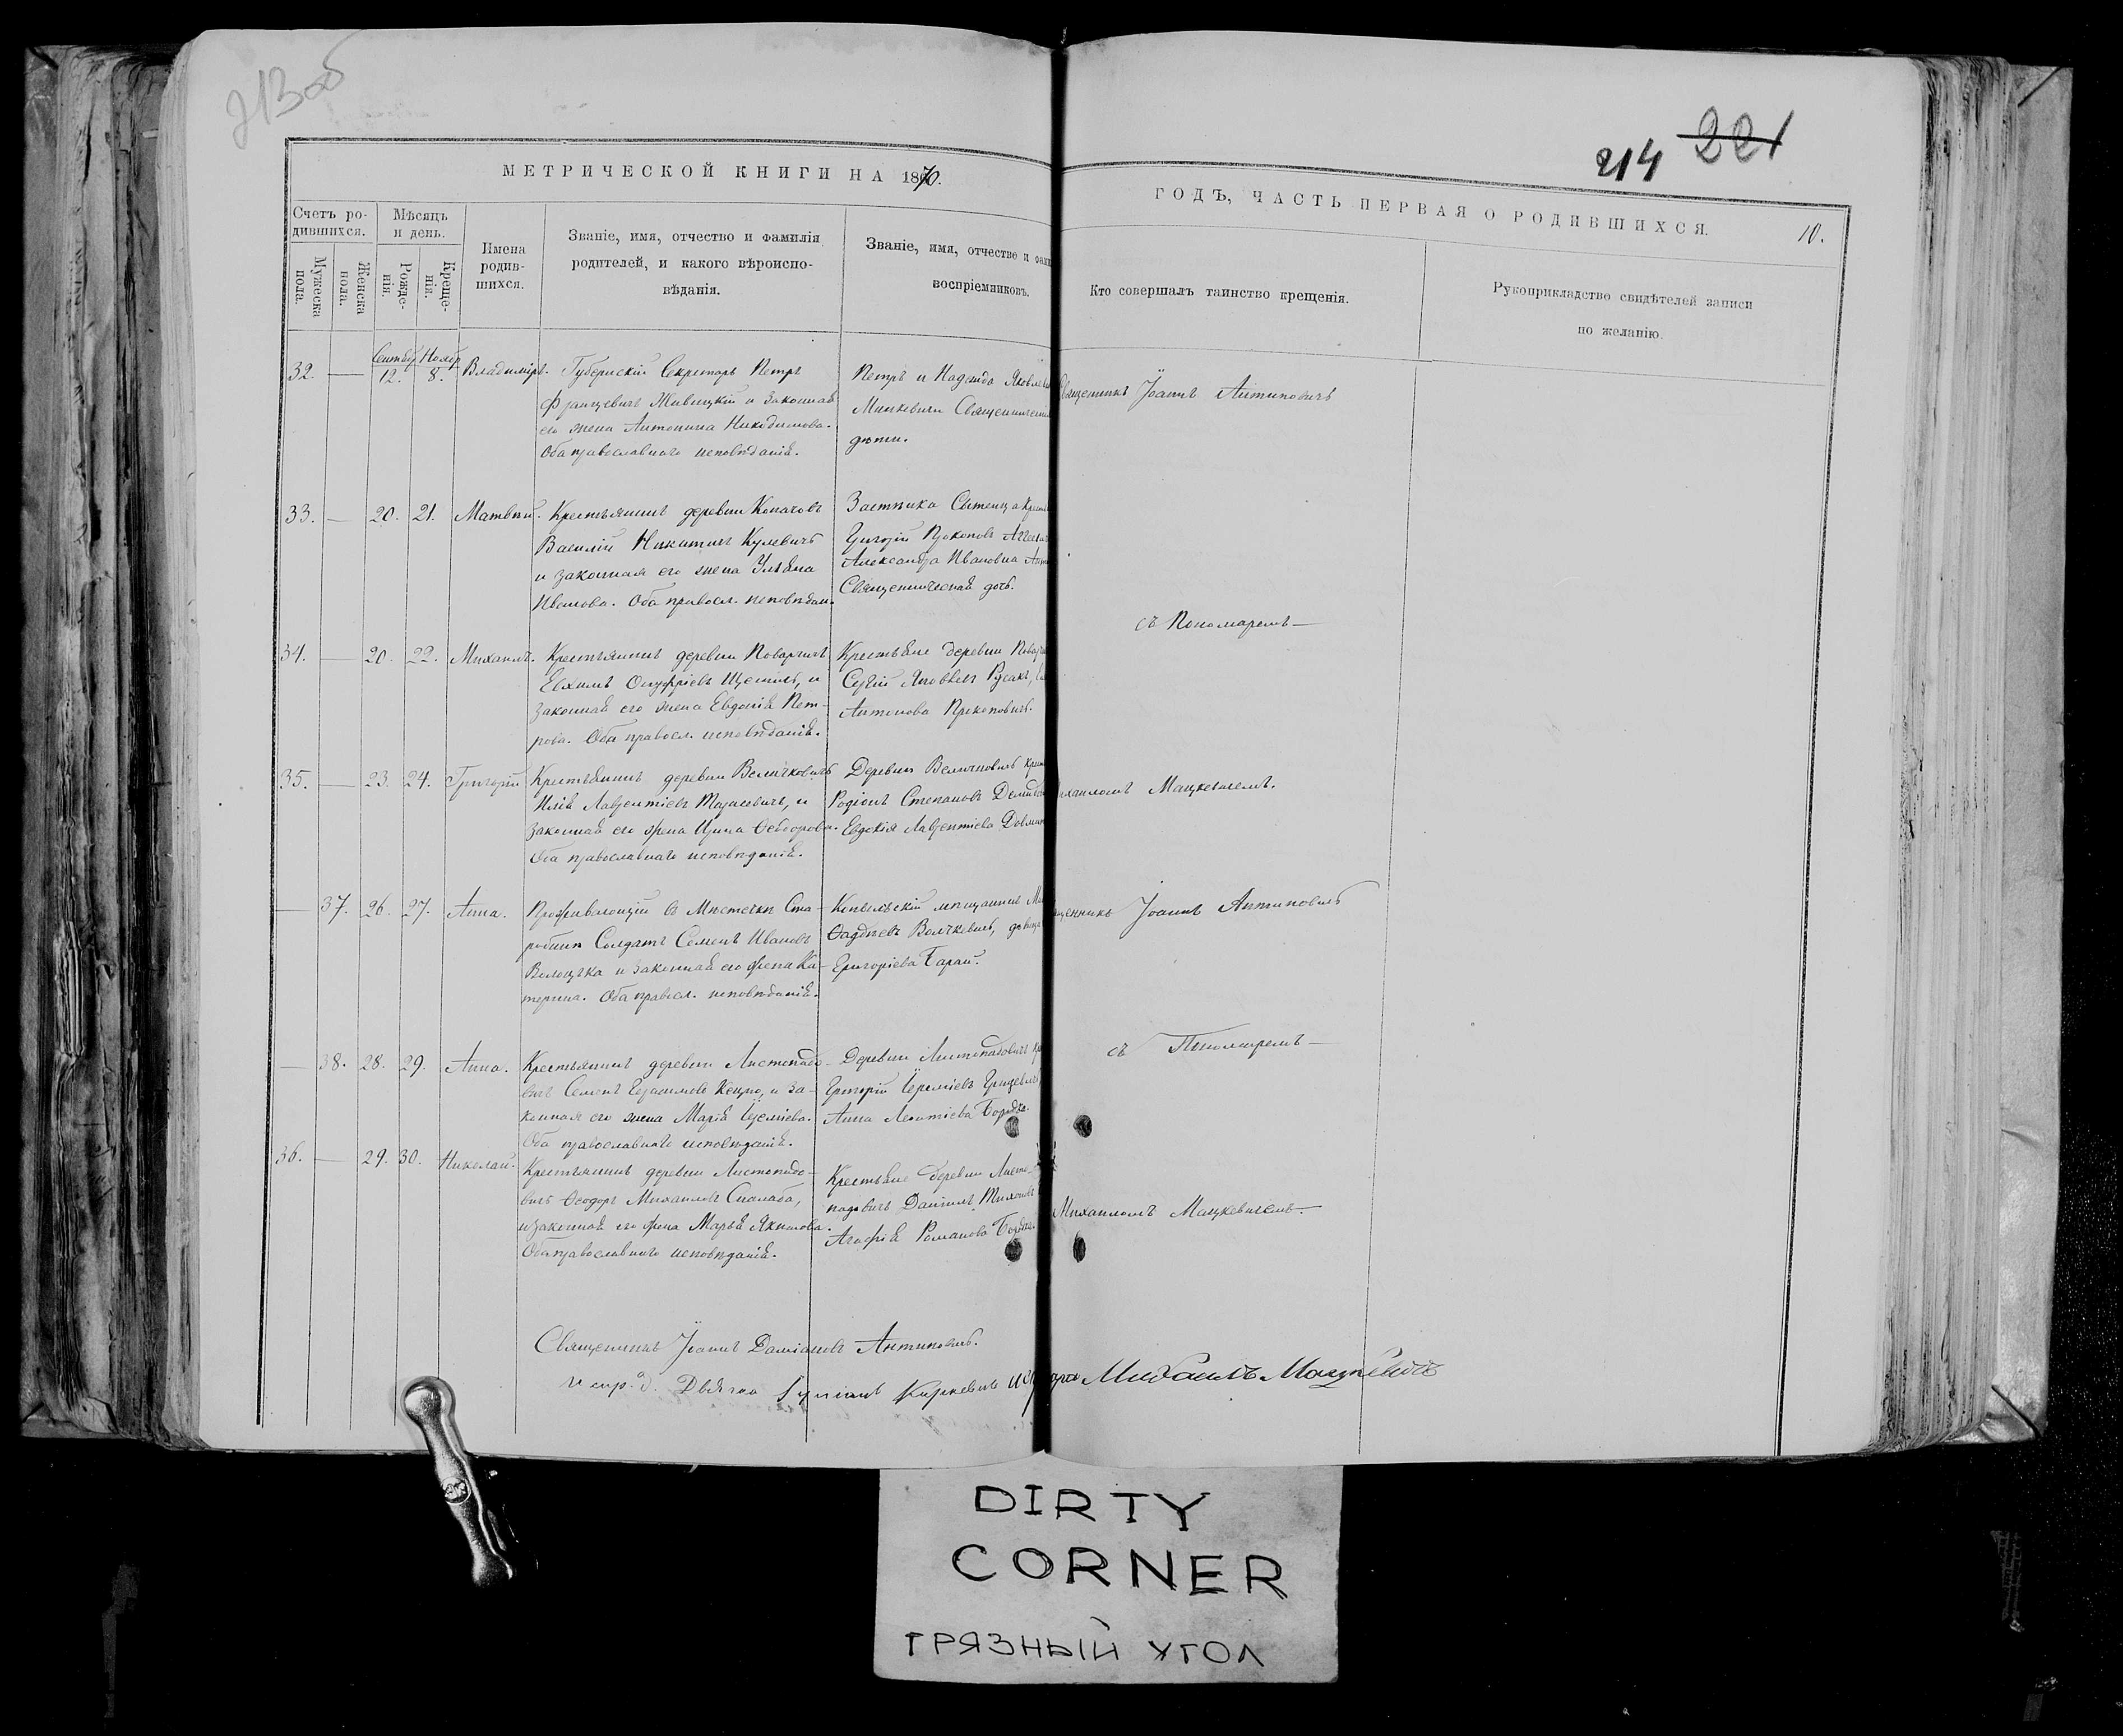 213 об
214 221
МЕТРИЧЕСКОЙ КНИГИ НА 1870.
ГОДЪ, ЧАСТЬ ПЕРВАЯ О РОДИВШИХСЯ.
10.
Счетъ ро-
дившихся.
Мужеска
пола.
Женска
пола.
Мѣсяцъ
и день.
Рожде-
нія.
Креще-
нія.
Имена
родив-
шихся.
Званіе, имя, отчество и фамилія
родителей, и какого вѣроиспо-
вѣданія.
Званіе, имя, отчество и фам
воспріемниковъ.
Кто совершалъ таинство крещенія.
Рукоприкладство свидѣтелей записи
по желанію.
Сентбр Ноябр
32. — 12. 8. Владиміръ.
Губернскій Секретарь Петръ
Францевичъ Живицкій и законная
его жена Антонина Никодимова.
Оба православнаго исповѣданія.
Петръ и Надежда
Мацкевичи Священнически
дѣти.
Священникъ Іоаннъ Антиповичъ
33. — 20. 21. Матвѣй.
Крестьянинъ деревни Копачовъ
Василій Никитинъ Кулевичъ
и законная его жена Ульяна
Иванова. Оба правосл. исповѣдан.
Григорій Прокоповъ
Александра Ивановна
Священническая дочь.
съ Пономаремъ—
34. — 20. 22. Михаилъ.
Крестьянинъ деревни Поварчичъ
Евхимъ Онуфріевъ и
законная его жена Евдокія Пет-
рова. Оба правосл. исповѣданія.
Крестьяне деревни
Сергій Яковлевъ Русакъ,
Антонова Прокоповичъ.
35. — 23. 24. Григорій
Крестьянинъ деревни Величковичъ
Илія Лаврентіевъ Тарасевичъ, и
законная его жена Ирина Ѳеодорова.
Оба православнаго исповѣданія.
Деревни Величковичъ
Родіонъ Степановъ
Евдокія Лаврентіева
Михаиломъ Мацкевичемъ.
— 37. 26. 27. Анна.
Проживающій въ Мѣстечкѣ Ста-
робинѣ Солдатъ Семенъ Ивановъ
и законная его жена Ка-
терина. Оба правосл. исповѣданія.
мѣщанинъ
Ѳадѣевъ Волчкевичъ, девица
Григоріева Барай.
Священникъ Іоаннъ Антиповичъ
— 38. 28. 29. Анна.
Крестьянинъ деревни Листопадо-
вичъ Семенъ Герасимовъ и за-
конная его жена Марія
Оба православнаго исповѣданія.
Деревни Листопадовичъ
Григорій Іереміевъ Грицевичъ,
Анна Леонтіева
съ Пономаремъ—
36. — 29. 30. Николай.
Крестьянинъ деревни Листопадо-
вичъ Ѳеодоръ Михаиловъ
и законная его жена Марья Якимова.
Оба православнаго исповѣданія.
Крестьяне деревни Листо-
падовичъ Даніилъ
Агафія Романова
Михаиломъ Мацкевичемъ—
Священникъ Іоаннъ Даміановъ Антиповичъ.
Испр. д. Дьячка Киркевичъ Михаилъ Мацкевичъ
DIRTY
CORNER
ГРЯЗНЫЙ УГОЛ